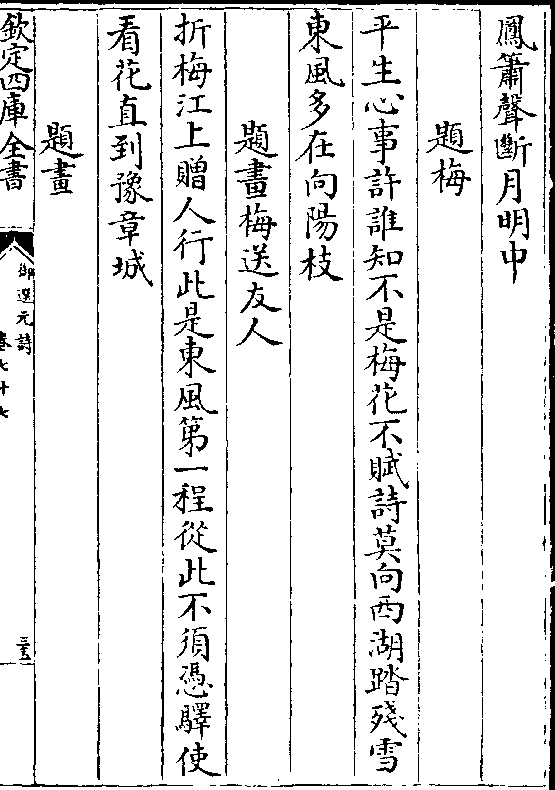 鳳簫聲斷月明中
題梅
平生心事許誰知不是梅花不賦詩莫向西湖踏殘雪
東風多在向陽枝
題畫梅送友人
折梅江上贈人行此是東風第一程從此不須憑驛使
看花直到豫章城
題畫
欽定四庫全書
御選元詩
卷七十七
三五